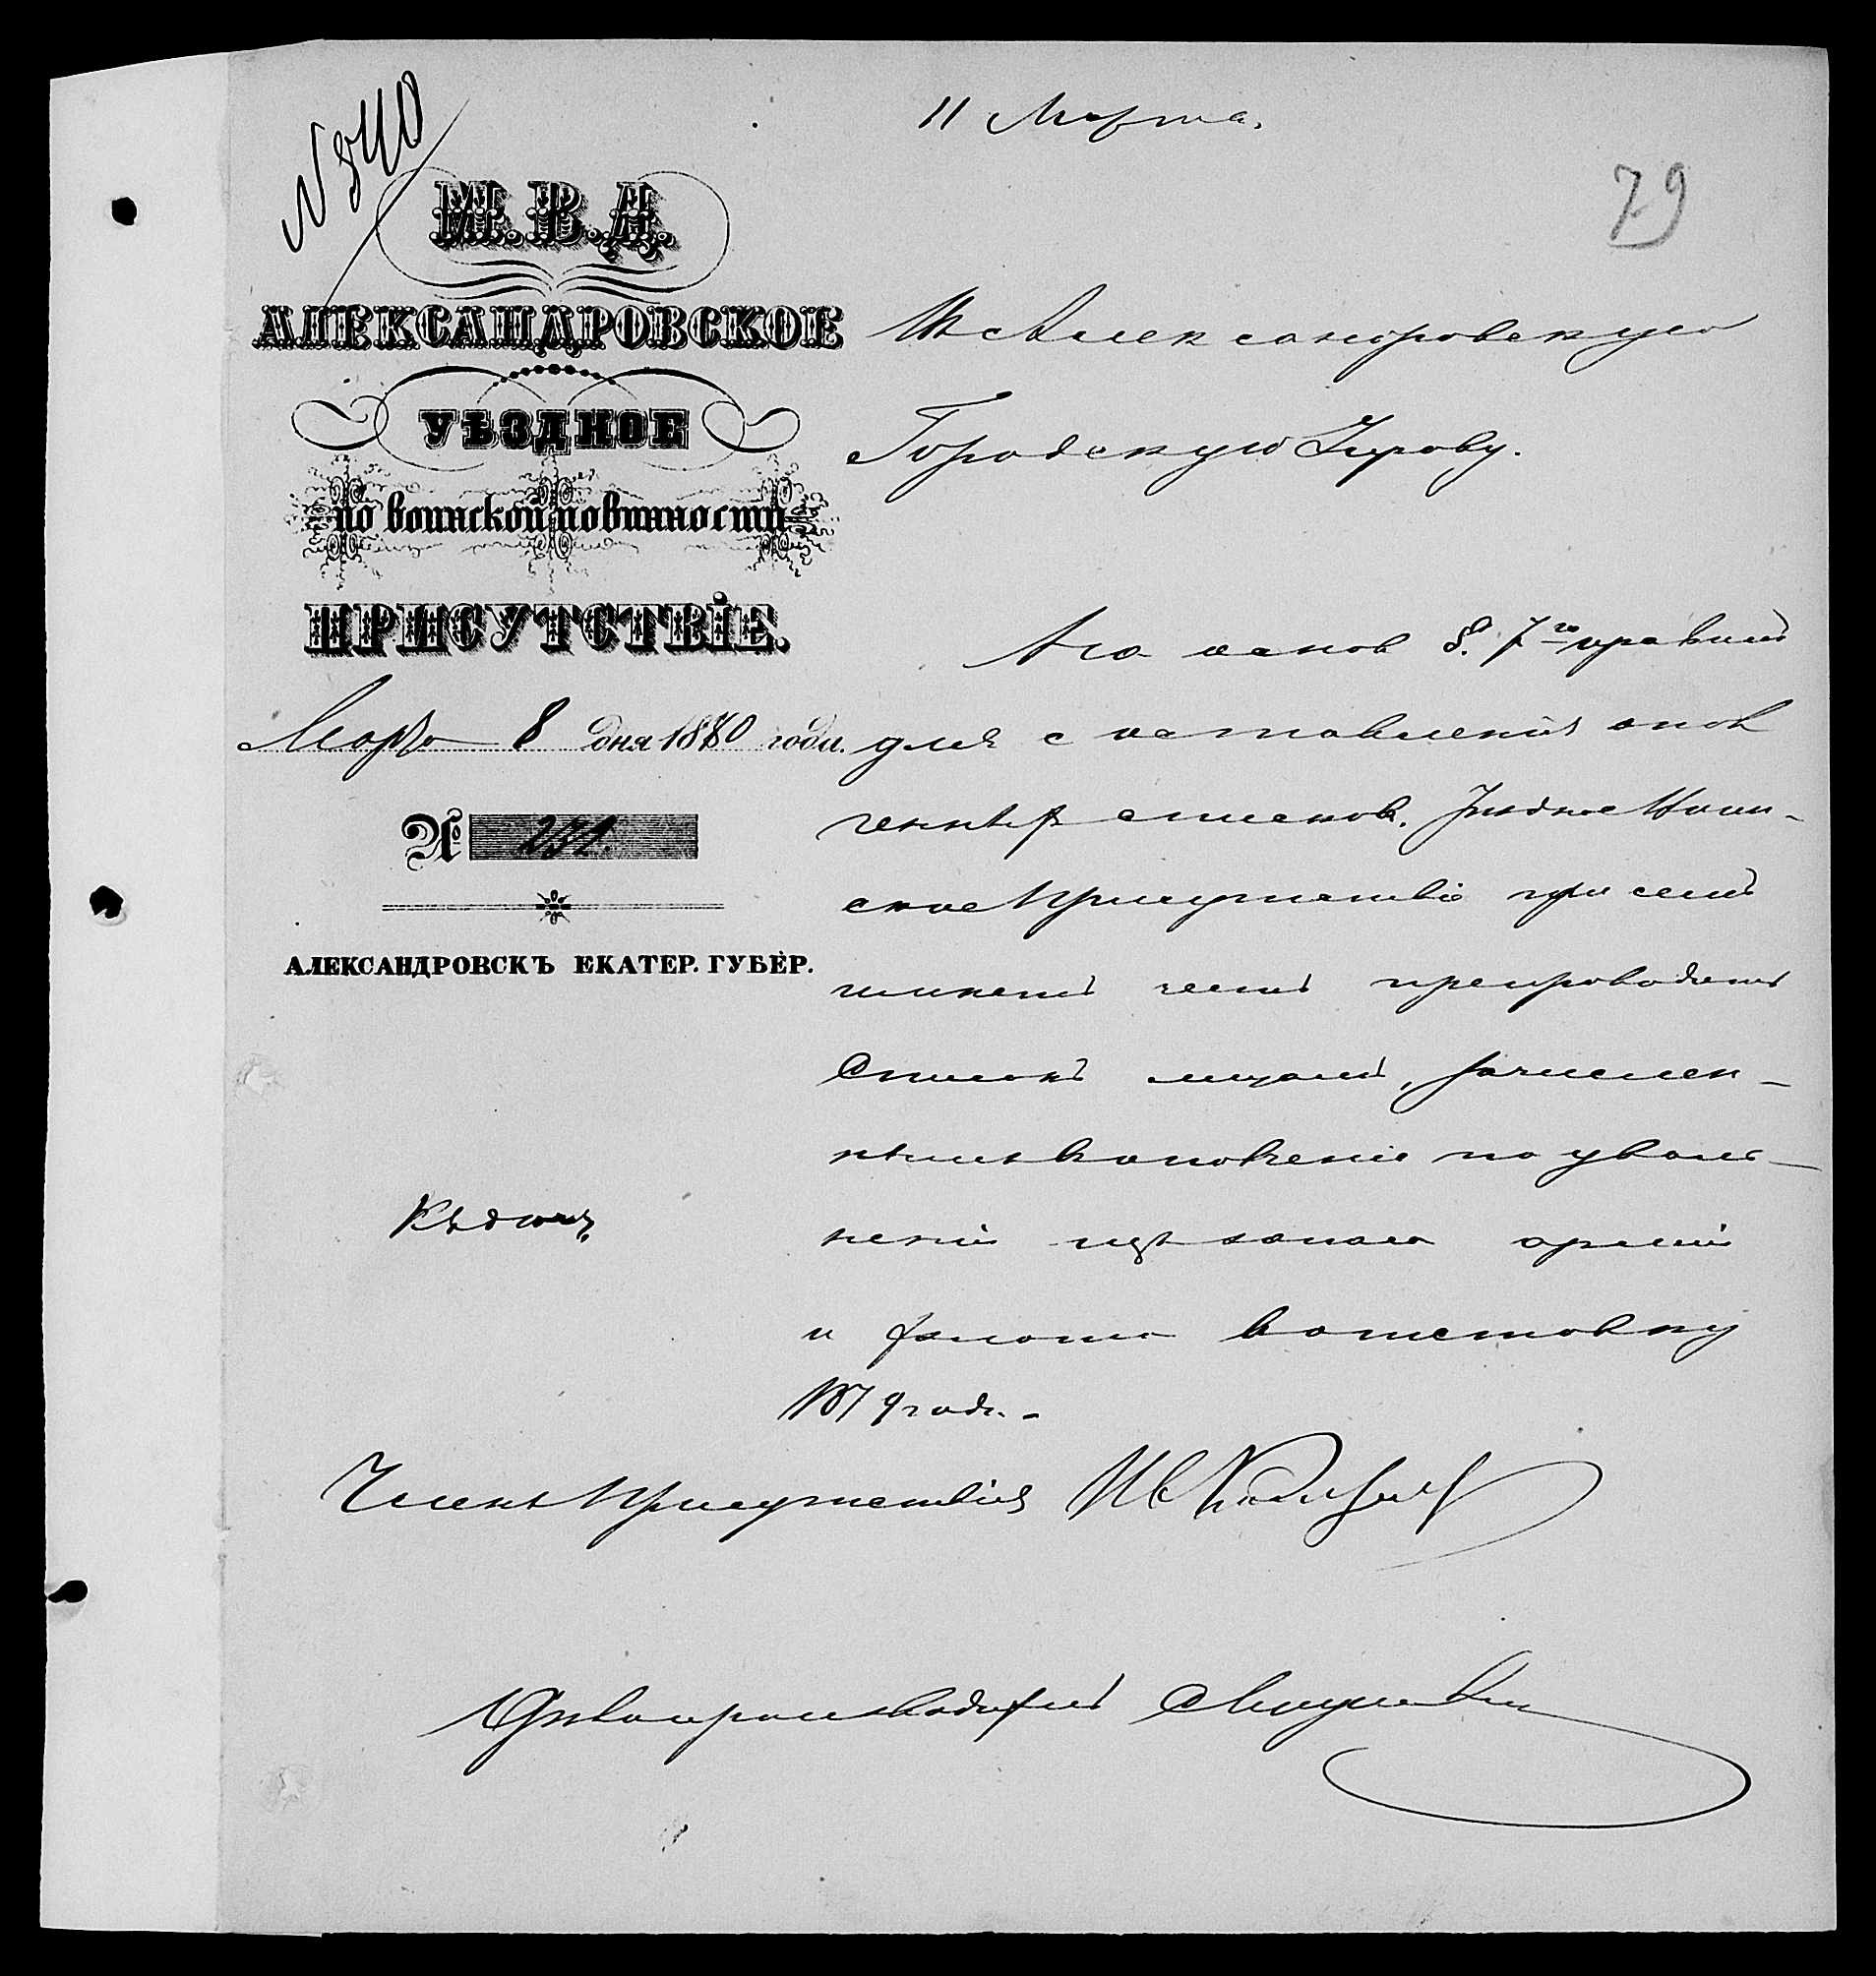 11 Марта.
№ 840
79
М.В.Д.
АЛЕКСАНДРОВСКОЕ
УѢЗДНОЕ
по воинской повинности
ПРИСУТСТВІЕ.
Марта 8 дня 1880 года.
№ 231.
АЛЕКСАНДРОВСКЪ ЕКАТЕР. ГУБЕР.
Въ Александровскую
Городскую Управу.
На основ § 7го правилъ
для составленія
списковъ. Уѣздное Воин-
ское Присутствіе при семъ
препровождаетъ
Списокъ лицамъ, зачислен-
нымъ въ ополченіе по уволь-
неніи изъ запаса арміи
и флота
1879 году.
Членъ Присутствія
Дѣлопроизводитель